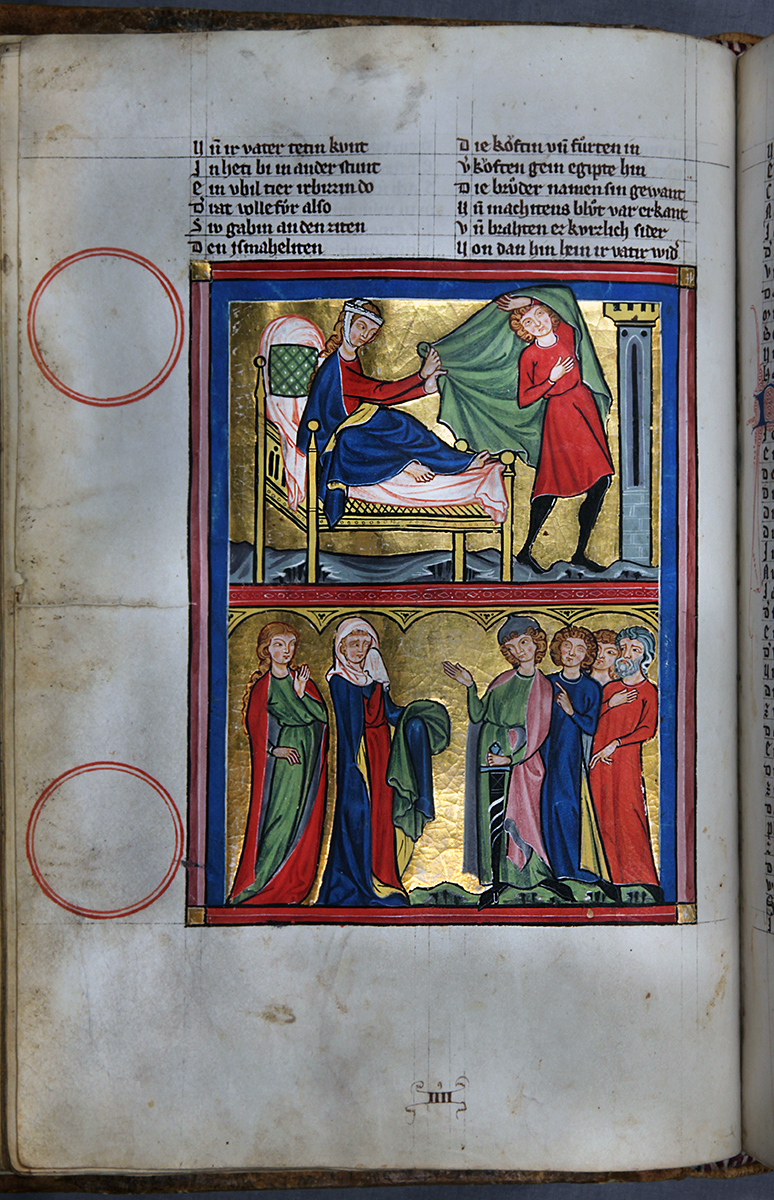 Uñ ir vater tetin kunt
In heti bi in ander stunt
Ein vbil tier irbizzin do
Dˢ rat volle fůr also
Siw gabin an den ziten
Den ismaheliten
Die kőftin vñ fůrten in
Vˢkőften gein egipte hin
Die brůder namen sin gewant
Uñ machtens blůt var erkant
Vñ brahten er kvrzlich sider
Uon dan hin hein ir vatir widˢ
IIII